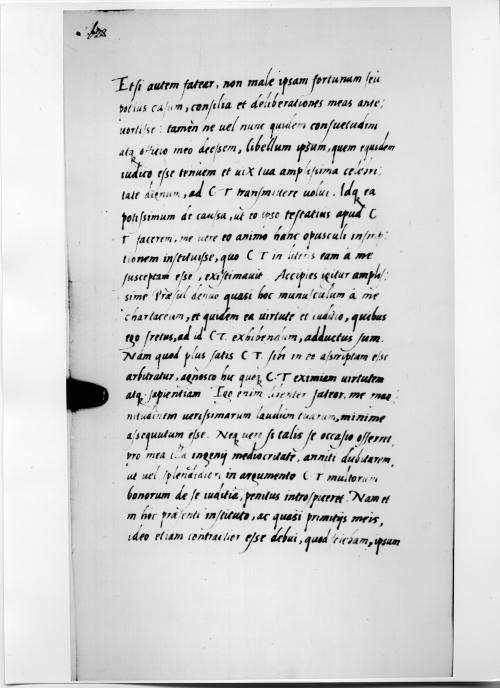 Etsi autem fatear, non male ipsam fortunam seu
potius casum, consilia et deliberationes meas ante,
uortisse: tamen ne uel nunc quidem consuetudini
atq officio meo deessem, libellum ipsum, quem equidem
iudico esse tenuem et uix tua amplissima celebri,
tate dignum, ad C-T transmittere uolui. Idq ea
potissimum de causa, ut eo ipso testatius apud C
T facerem, me uere eo animo hanc opusculi inscrip,
tionem instituisse, quo C T in literis eam à me
susceptam esse, existimauit. Accipies igitur amplis,
sime Præsul denuo quasi hoc munusculum à me
chartaceum, et quidem ea uirtute et iudicio, quibus
ego fretus, ad id C.T. exhibendum, adductus sum.
Nam quod plus satis C T. sibi in eo asscriptam esse
arbitratur, agnosco hic quoq C.T eximiam uirtutem
atq sapientiam Ego enim libenter fateor, me mag
nitudinem uerissimarum laudum tuarum, minime
assequutum esse. Neq uero si talis se occasio offerret,
pro mea illa ingenij mediocritate, anniti dubitarem,
ut uel splendidiori in argumento C T multorum
bonorum de se iuditia, penitus introspiceret. Nam et
in hoc præsenti instituto, ac quasi primitijs meis,
ideo etiam contractior esse debui, quod sciebam, ipsam